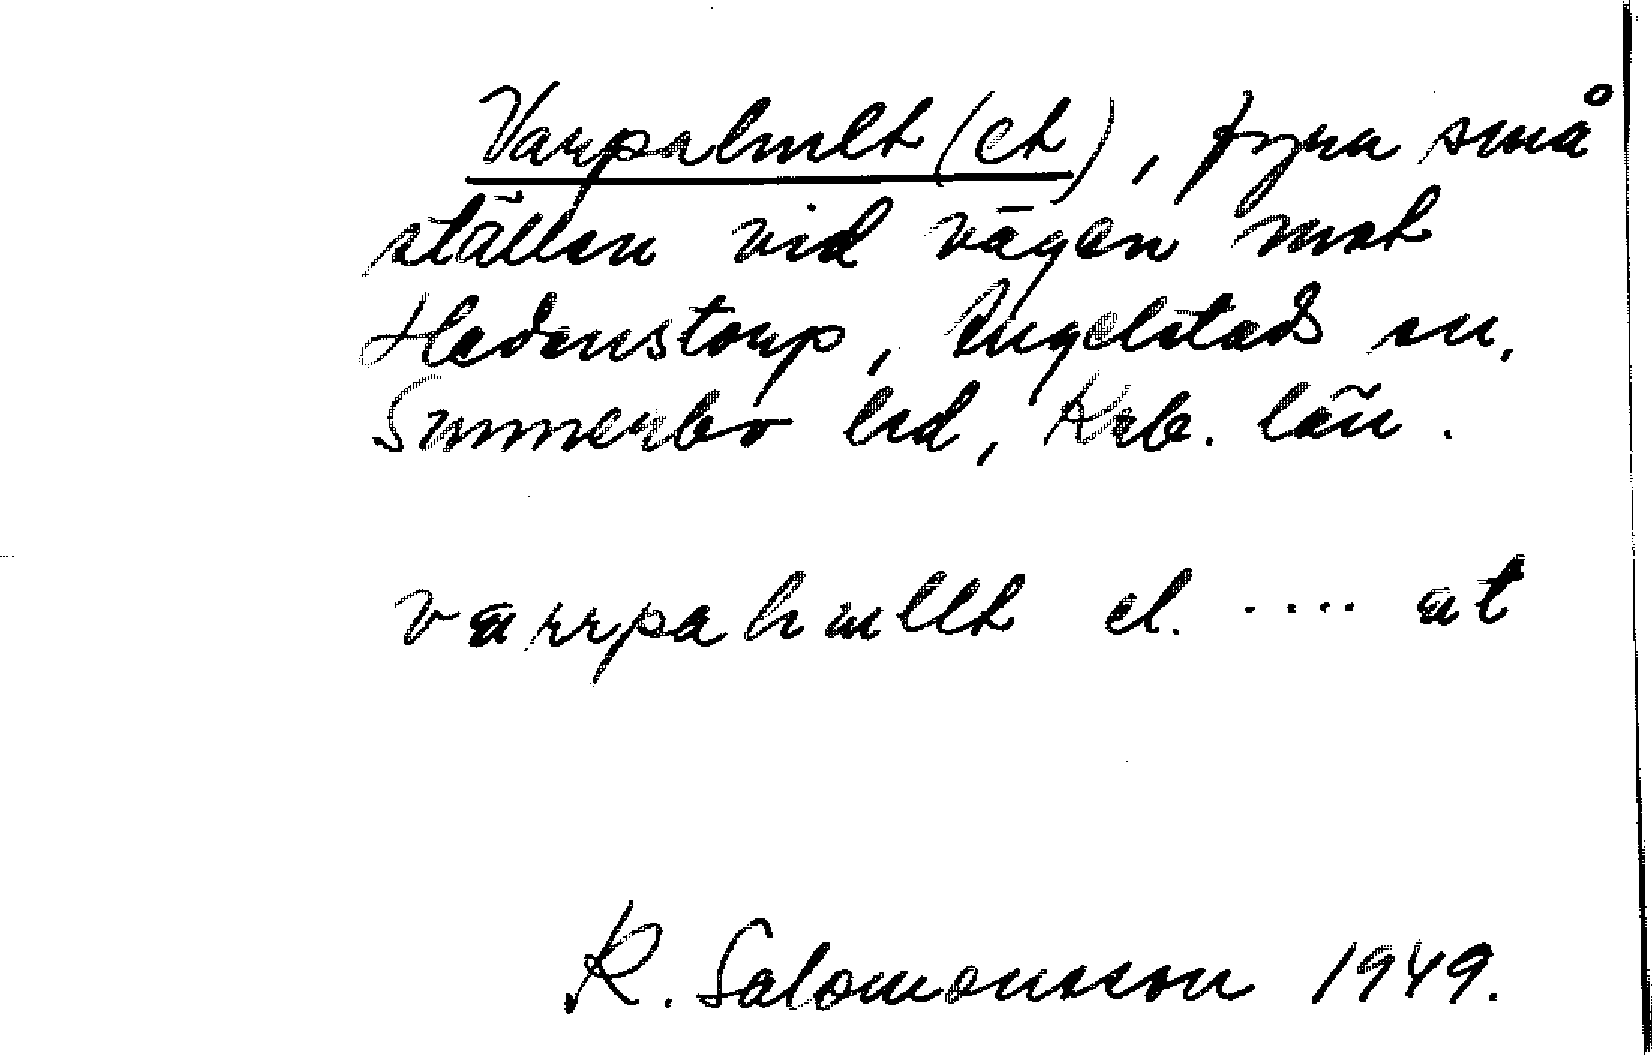 Varpahult (et), fyra små
ställen vid vägen mot
Hedenstorp, Angelstads sn,
Sunnerbo hd, Krb. län.
varrpahullt el. .... at
K. Salomonsson 1949.